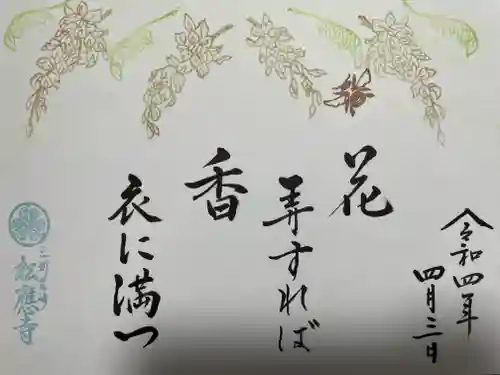 花
弄すれば
香
衣に満つ
令和四年
四月三日
松應寺